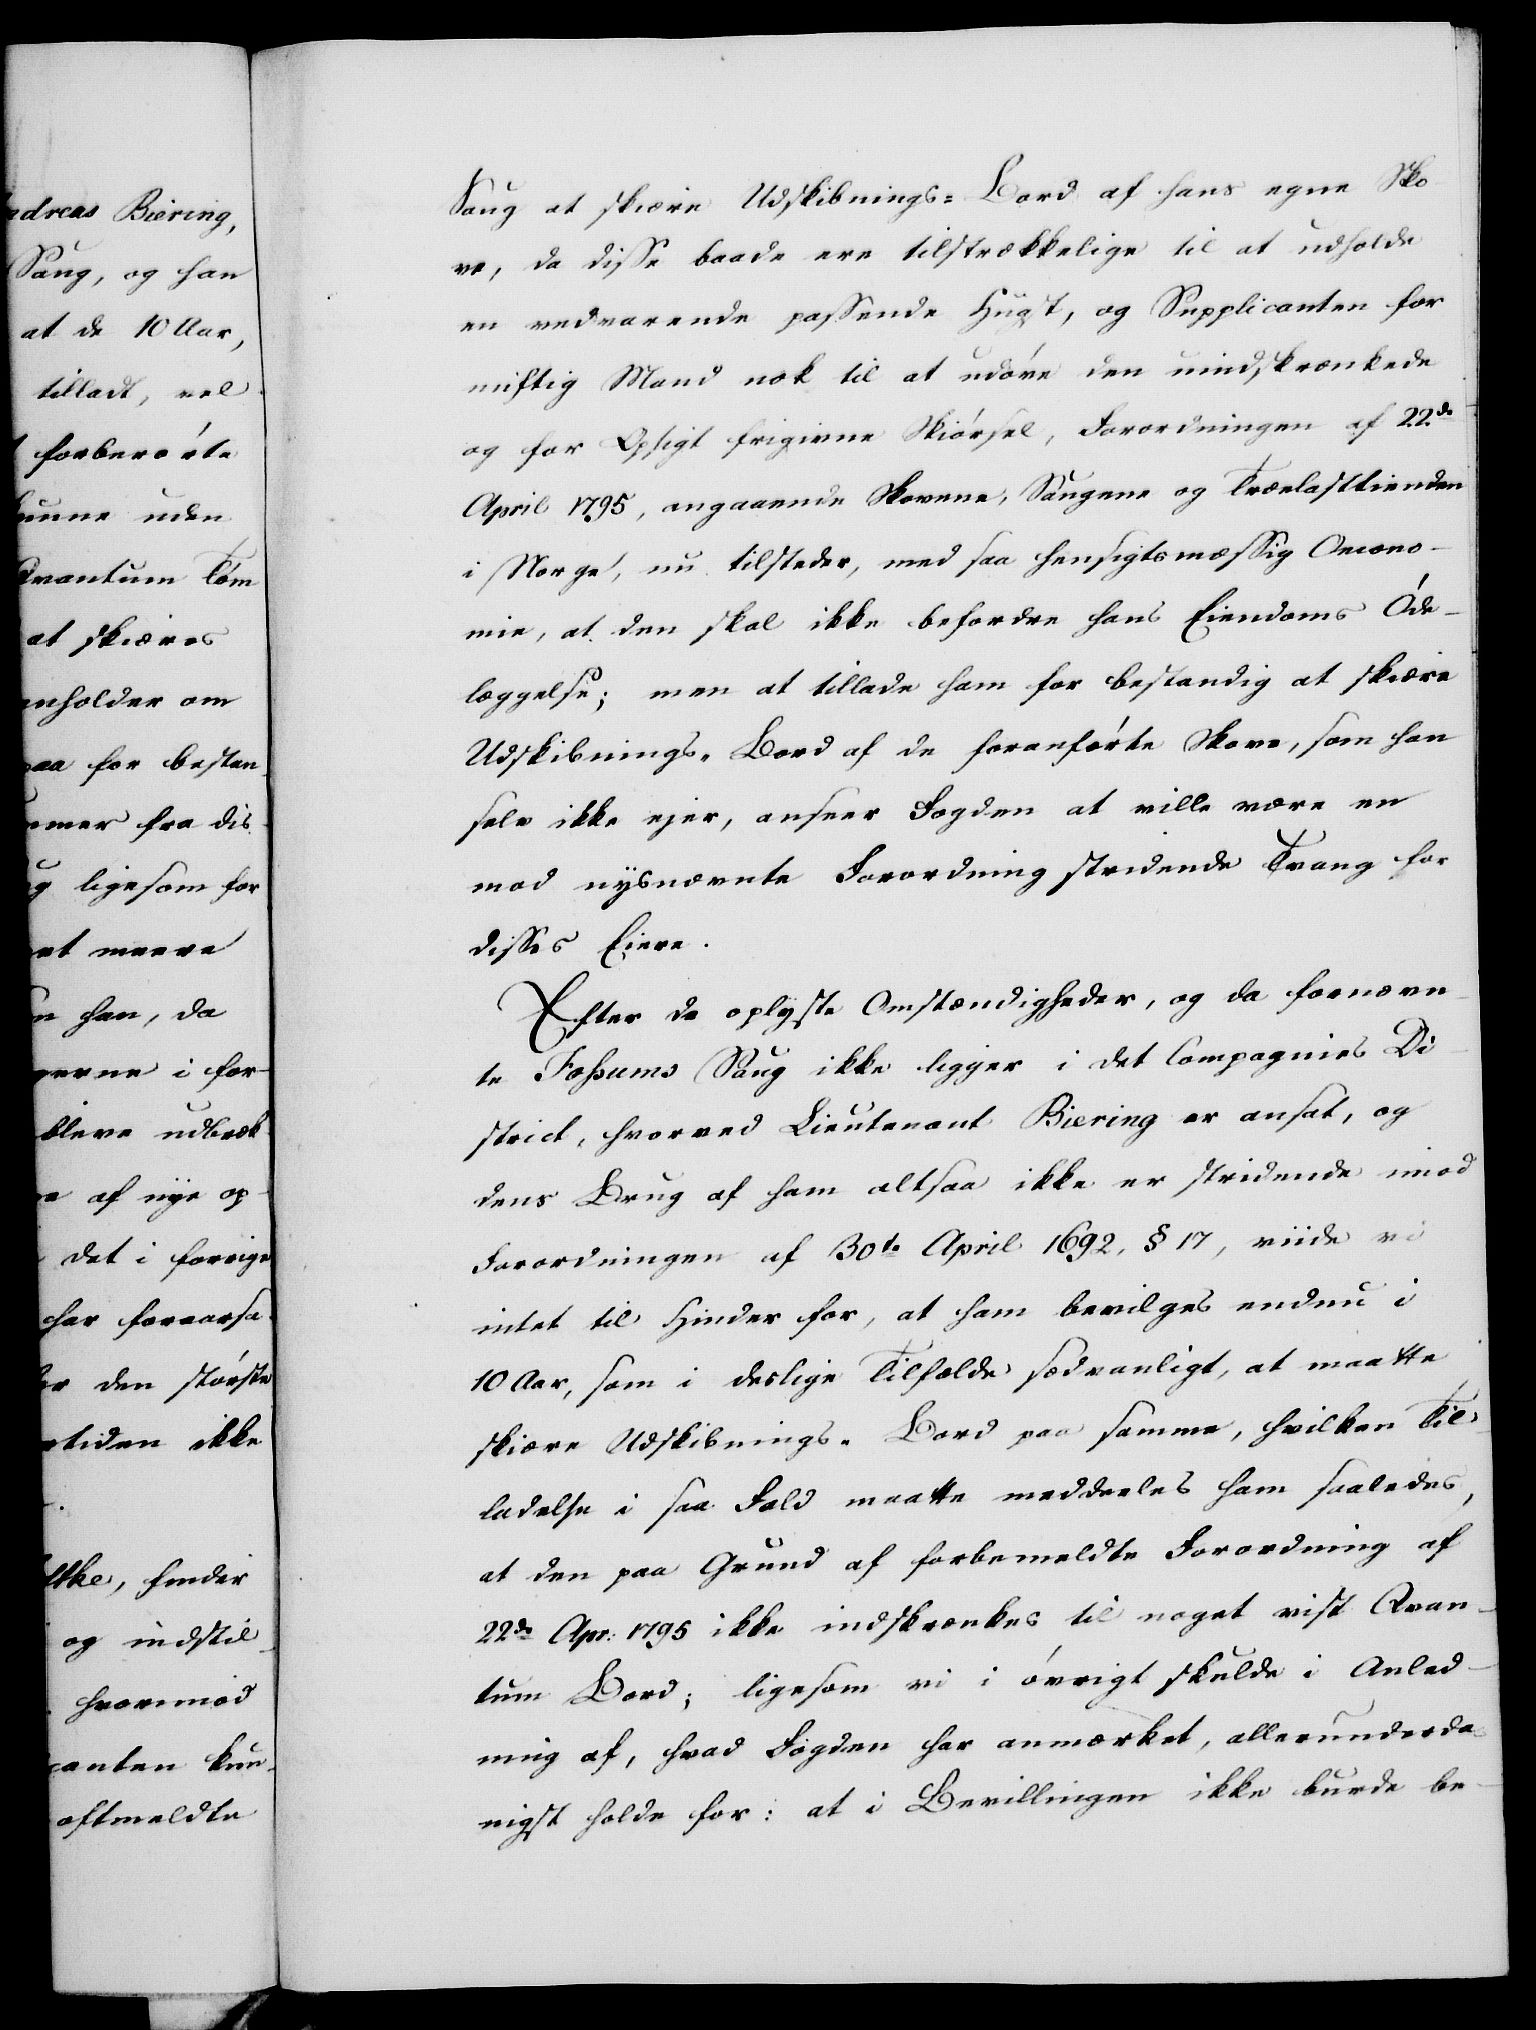 ndreas Biering,
Saug, og han
at de 10 Aar,
tilladt, vel
forberørte
kunne uden
Qvantum Tøm
at skiæres
anholder om
maa for bestan-
mmer fra dis-
og ligesom for
et meere
en han, da
gerne i for-
bleve udbræk
e af nye op-
det i forrige
har foraarsa-
er den største
rtiden ikke
ttke, finder
og indstil-
hvorimod
canten kun-
oftmeldte
Saug at skiære Udskibnings= Bord af hans egne Sko
ve, da disse baade ere tilstrækkelige til at udholde
en vedvarende passende Hugst, og Supplicanten for
nuftig Mand nok til at udøve den uindskrænkede
og for Opsigt frigivne Skiørsel, Forordningen af 22de
April 1795, angaaende Skovene, Saugene og Trælasttienden
i Norge, nu tilsteder, med saa hensigtsmæssig Oecono-
mie, at den skal ikke befordre hans Eiendoms Øde-
læggelse; men at tillade ham for bestandig at skiære
Udskibnings= Bord af de foranførte Skove, som han
selv ikke ejer, anseer Fogden at ville være en
mod nysnævnte Forordning stridende Tvang for
disses Eiere.
Efter de oplyste Omstændigheder, og da fornævn
te Fossums Saug ikke ligger i det Compagnies Di
strict, hvorved Lieutenant Biering er ansat, og
dens Brug af ham altsaa ikke er stridende imod
Forordningen af 30te April 1692, § 17, viide vi
intet til Hinder for, at ham bevilges endnu i
10 Aar, som i deslige Tilfælde sædvanligt, at maatte
skiære Udskibnings= Bord paa samme, hvilken Til-
ladelse i saa Fald maatte meddeeles ham saaledes,
at den paa Grund af forbemeldte Forordning af
22de Apr: 1795 ikke indskrænkes til noget vist Qvan-
tum Bord; ligesom vi i øvrigt skulde i Anled-
ning af, hvad Fogden har anmærket, allerunderda-
nigst holde for: at i Bevillingen ikke burde be-